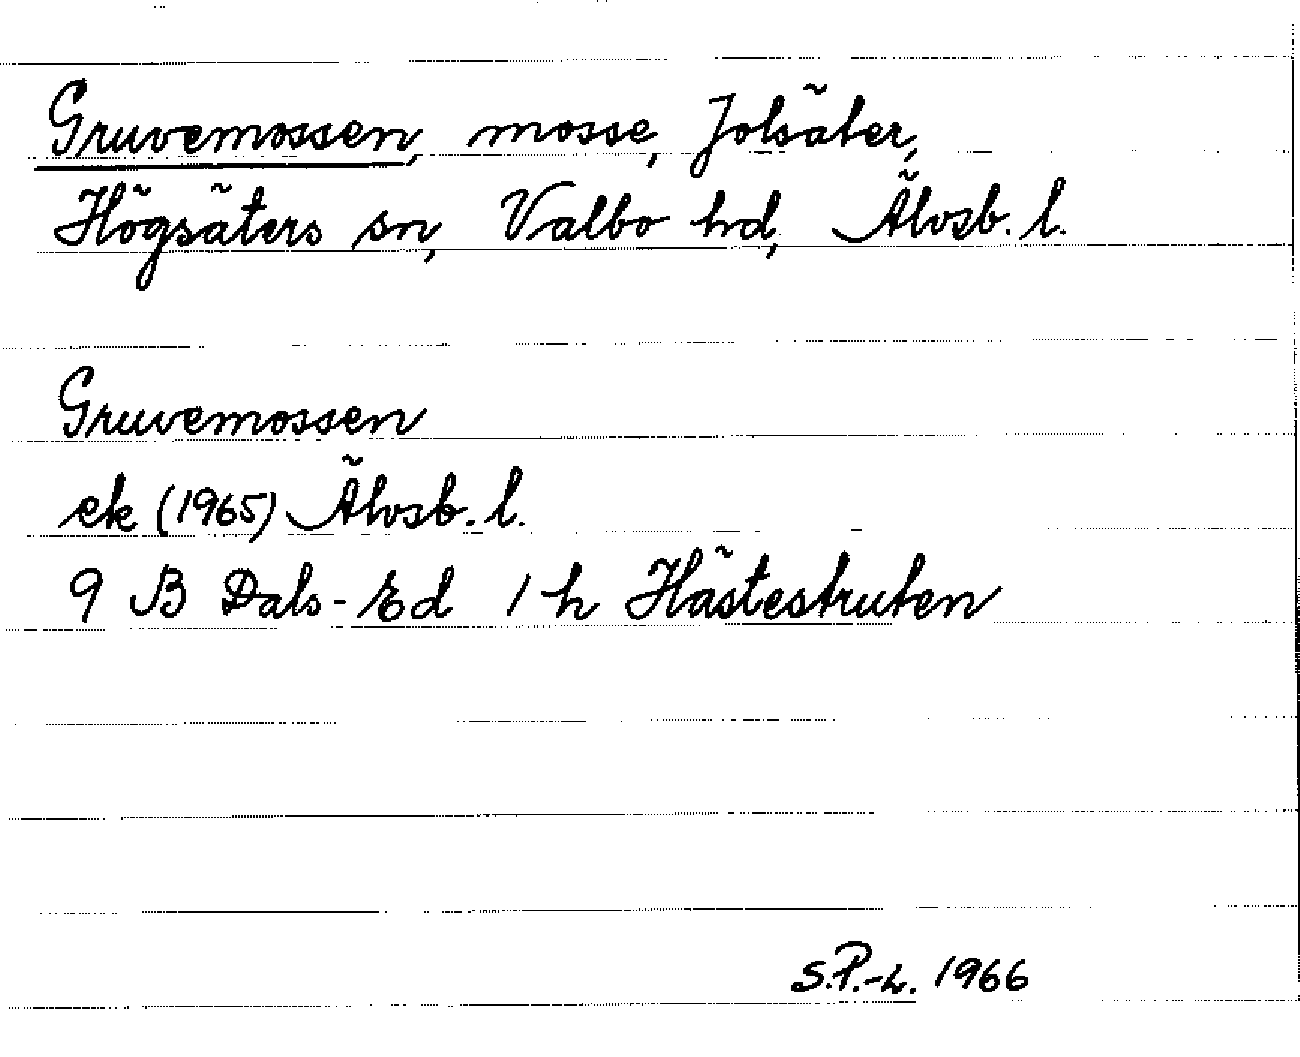 Gruvemossen, mosse, Jolsäter,
Högsäters sn, Valbo hd, Älvsb. l.
Gruvemossen
ek (1965) Älvsb. l.
9 B Dals-Ed 1 h Hästestruten
S.P.-L. 1966